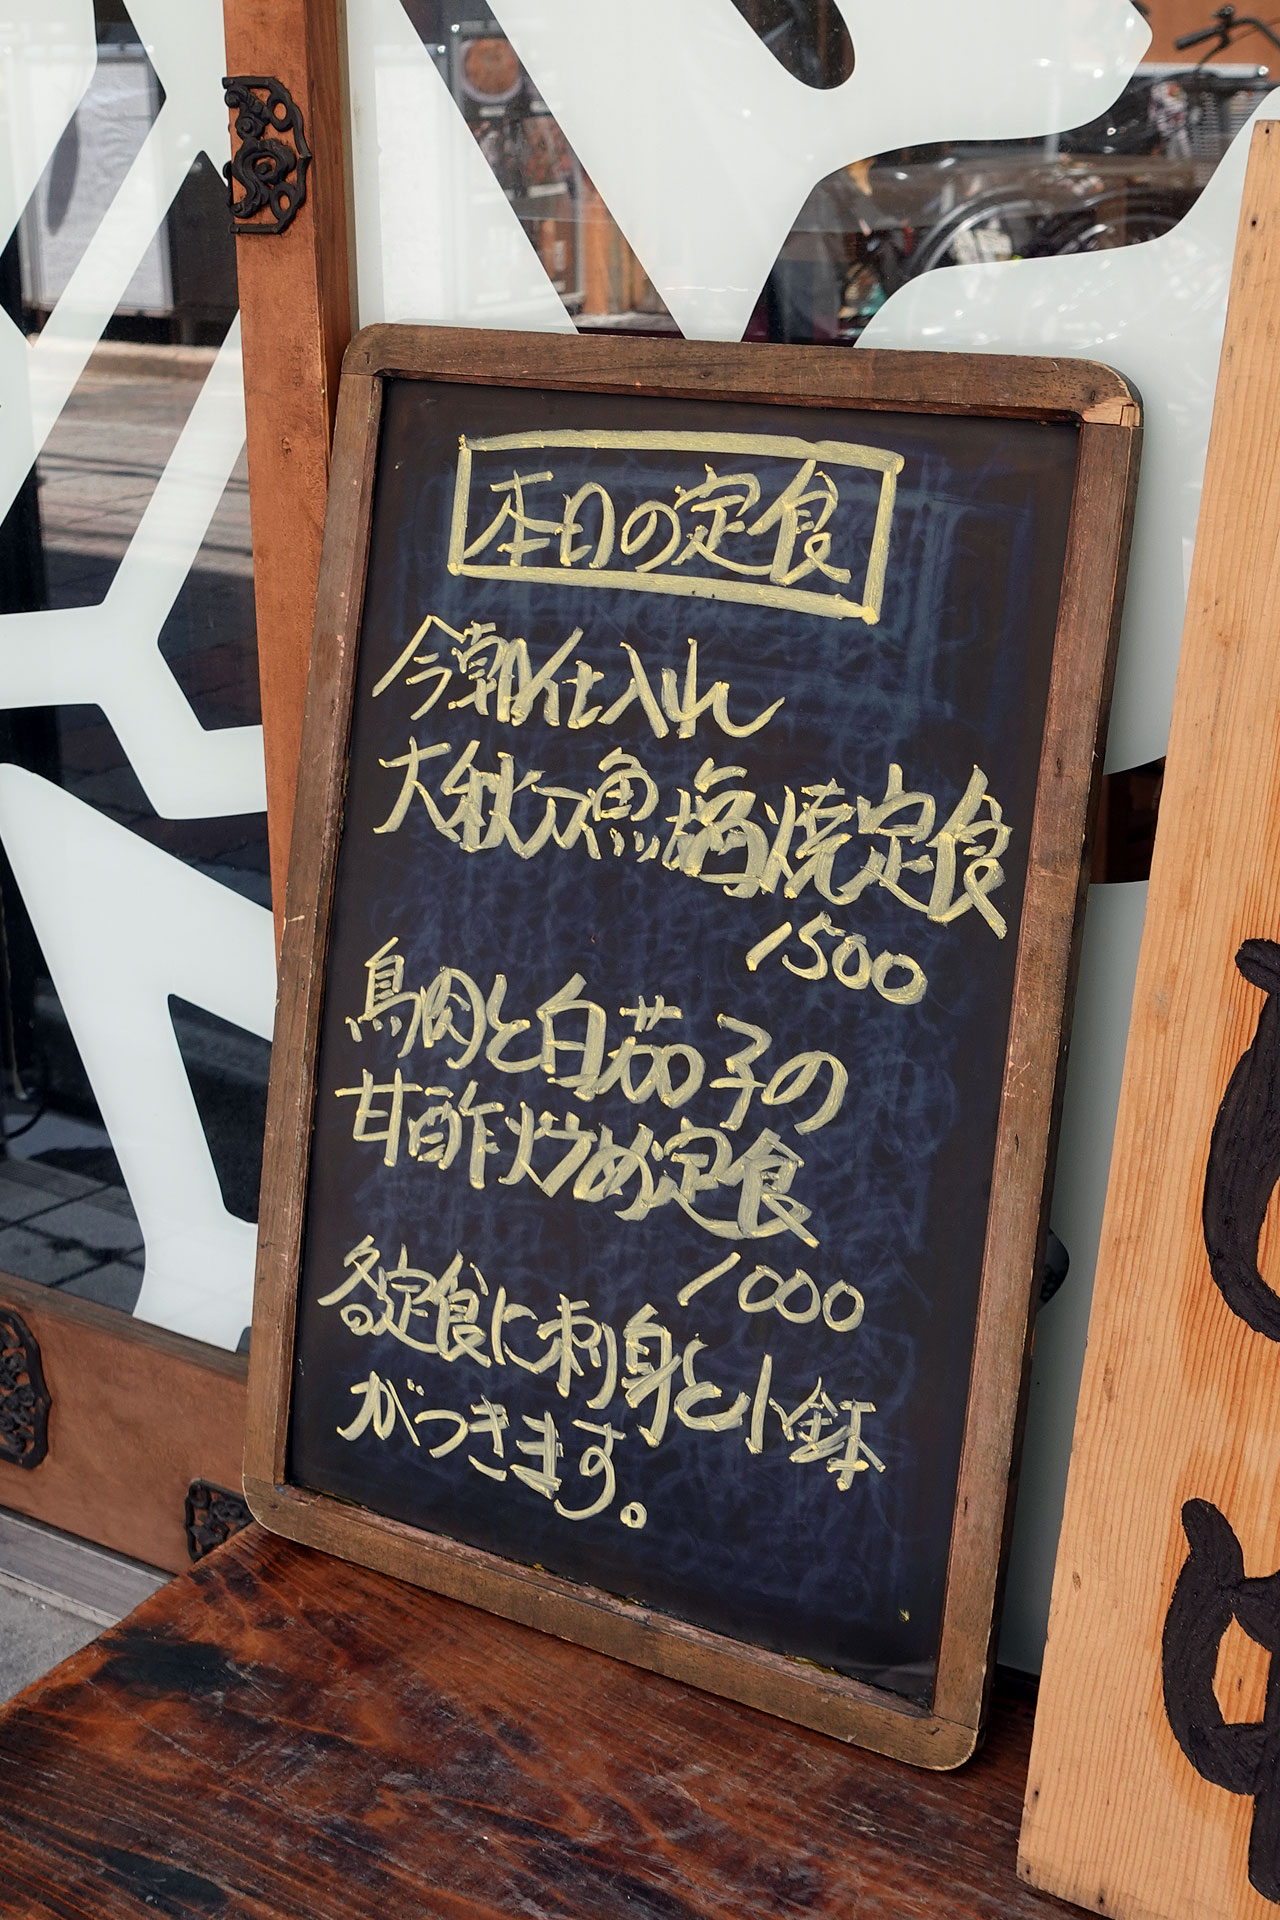 本日の定食
今朝仕入れ
大秋刀魚塩焼定食
1500
鳥肉と白茄子の
甘酢炒め定食
1000
各定食に刺身と小鉢
がつきます。